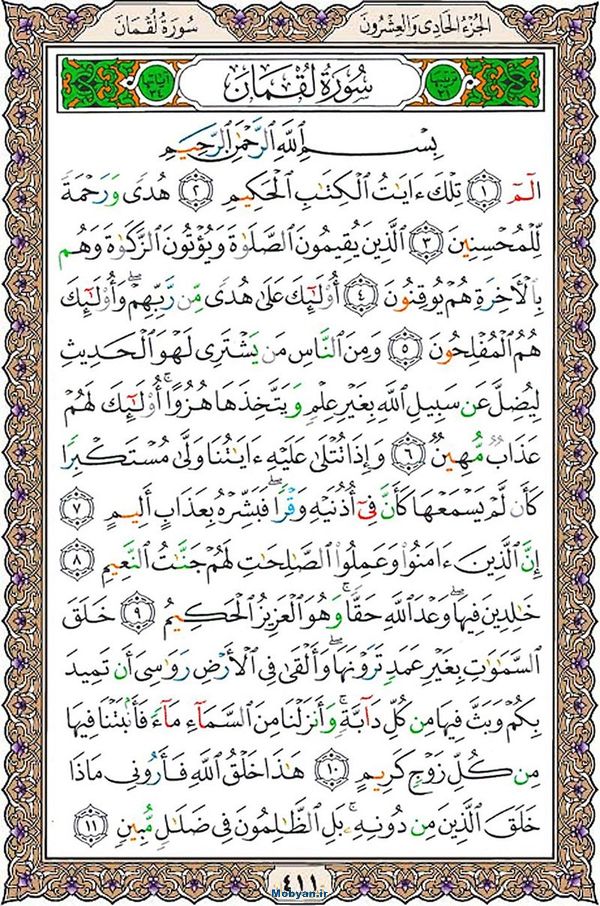 الجُزْءُ الحَادِى وَالعِشْرُونَ
سُورَةُ لُقْمَانَ
سُورَةُ لُقْمَانَ
بِسْمِ ٱللَّهِ ٱلرَّحْمَٰنِ ٱلرَّحِيمِ
الٓمٓ ۝١ تِلْكَ ءَايَٰتُ ٱلْكِتَٰبِ ٱلْحَكِيمِ ۝٢ هُدًى وَرَحْمَةً
لِّلْمُحْسِنِينَ ۝٣ ٱلَّذِينَ يُقِيمُونَ ٱلصَّلَوٰةَ وَيُؤْتُونَ ٱلزَّكَوٰةَ وَهُم
بِٱلْءَاخِرَةِ هُمْ يُوقِنُونَ ۝٤ أُو۟لَٰٓئِكَ عَلَىٰ هُدًى مِّن رَّبِّهِمْ ۖ وَأُو۟لَٰٓئِكَ
هُمُ ٱلْمُفْلِحُونَ ۝٥ وَمِنَ ٱلنَّاسِ مَن يَشْتَرِى لَهْوَ ٱلْحَدِيثِ
لِيُضِلَّ عَن سَبِيلِ ٱللَّهِ بِغَيْرِ عِلْمٍ وَيَتَّخِذَهَا هُزُوًا ۚ أُو۟لَٰٓئِكَ لَهُمْ
عَذَابٌ مُّهِينٌ ۝٦ وَإِذَا تُتْلَىٰ عَلَيْهِ ءَايَٰتُنَا وَلَّىٰ مُسْتَكْبِرًا
كَأَن لَّمْ يَسْمَعْهَا كَأَنَّ فِىٓ أُذُنَيْهِ وَقْرًا ۖ فَبَشِّرْهُ بِعَذَابٍ أَلِيمٍ ۝٧
إِنَّ ٱلَّذِينَ ءَامَنُوا۟ وَعَمِلُوا۟ ٱلصَّٰلِحَٰتِ لَهُمْ جَنَّٰتُ ٱلنَّعِيمِ ۝٨
خَٰلِدِينَ فِيهَا ۖ وَعْدَ ٱللَّهِ حَقًّا ۚ وَهُوَ ٱلْعَزِيزُ ٱلْحَكِيمُ ۝٩ خَلَقَ
ٱلسَّمَٰوَٰتِ بِغَيْرِ عَمَدٍ تَرَوْنَهَا ۖ وَأَلْقَىٰ فِى ٱلْأَرْضِ رَوَٰسِىَ أَن تَمِيدَ
بِكُمْ وَبَثَّ فِيهَا مِن كُلِّ دَآبَّةٍ ۚ وَأَنزَلْنَا مِنَ ٱلسَّمَآءِ مَآءً فَأَنۢبَتْنَا فِيهَا
مِن كُلِّ زَوْجٍ كَرِيمٍ ۝١٠ هَٰذَا خَلْقُ ٱللَّهِ فَأَرُونِى مَاذَا
خَلَقَ ٱلَّذِينَ مِن دُونِهِۦ ۚ بَلِ ٱلظَّٰلِمُونَ فِى ضَلَٰلٍ مُّبِينٍ ۝١١
٤١١
Mobyan.ir